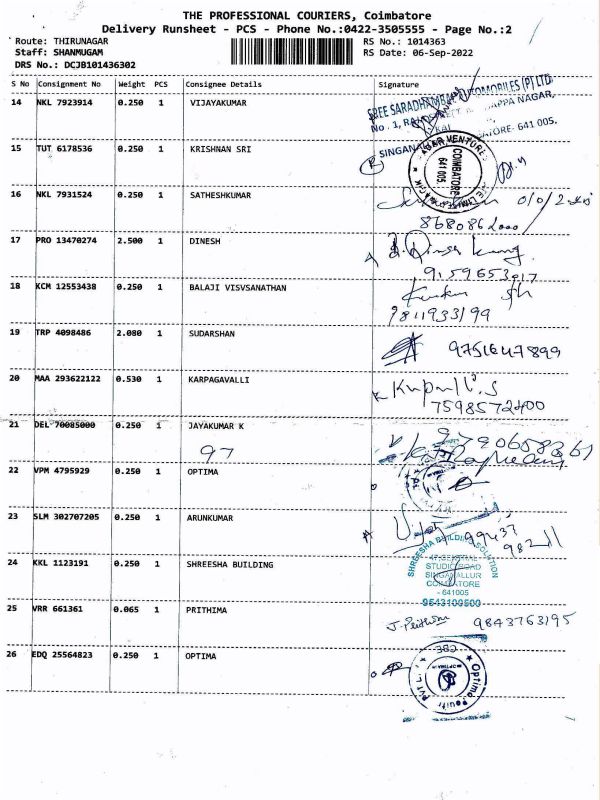 THE PROFESSIONAL COURIERS, Coimbatore
Delivery Runsheet - PCS - Phone No.:0422-3505555 - Page No.:2
Route: THIRUNAGAR
RS No.: 1014363
Staff: SHANMUGAM
RS Date: 06-Sep-2022
DRS No.: DCJB101436302
S No Consignment No Weight PCS Consignee Details Signature
14 NKL 7923914 0.250 1 VIJAYAKUMAR
SREE SARADHAMBAL AUTOMOBILES (P) LTD
No. 1,
APPA NAGAR,
COIMBATORE- 641 005.
15 TUT 6178536 0.250 1 KRISHNAN SRI
SINGANALLUR
VENTURES
COIMBATORE
641 005.
16 NKL 7931524 0.250 1 SATHESHKUMAR
17 PRO 13470274 2.500 1 DINESH
18 KCM 12553438 0.250 1 BALAJI VISVSANATHAN
9811933199
19 TRP 4098486 2.080 1 SUDARSHAN
9751647899
20 MAA 293622122 0.530 1 KARPAGAVALLI
7598572400
21 DEL 70085000 0.250 1 JAYAKUMAR K
97
9790658361
22 VPM 4795929 0.250 1 OPTIMA
23 SLM 302707205 0.250 1 ARUNKUMAR
24 KKL 1123191 0.250 1 SHREESHA BUILDING
SHREESHA BUILDING SOLUTION
STUDIO ROAD
SINGANALLUR
COIMBATORE
- 641005
9843100500
25 VRR 661361 0.065 1 PRITHIMA
J. Prithima 9843763195
26 EDQ 25564823 0.250 1 OPTIMA
Optima
Pvt Ltd
CBE